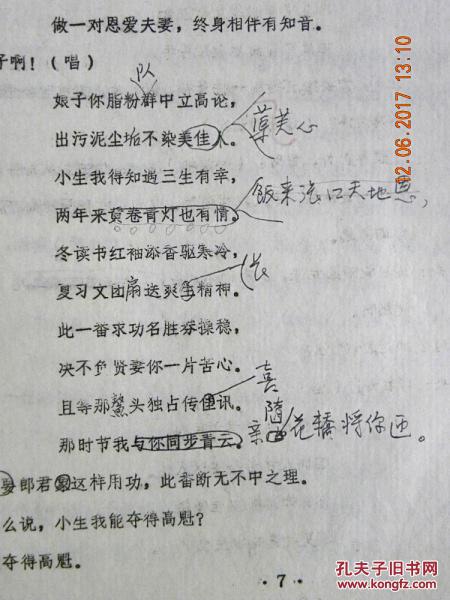 做一对恩爱夫妻，终身相伴有知音。
子啊！（唱）
队
娘子你脂粉群中立高论，
出污泥尘垢不染美佳人。
草芙心
小生我得知遇三生有幸，
饭来张口天地恩，
两年来黄卷青灯也有情。
冬读书红袖添香驱寒冷，
长
夏习文团扇送爽生精神。
此一番求功名胜券操稳，
决不负贤妻你一片苦心。
喜
且等那鳌头独占传佳讯。
随
那时节我与你同步青云。
亲 花轿将你迎。
郎君 这样用功，此番断无不中之理。
么说，小生我能夺得高魁？
夺得高魁。
·7·
12.06.2017 13:10
孔夫子旧书网
KONGFZ.COM